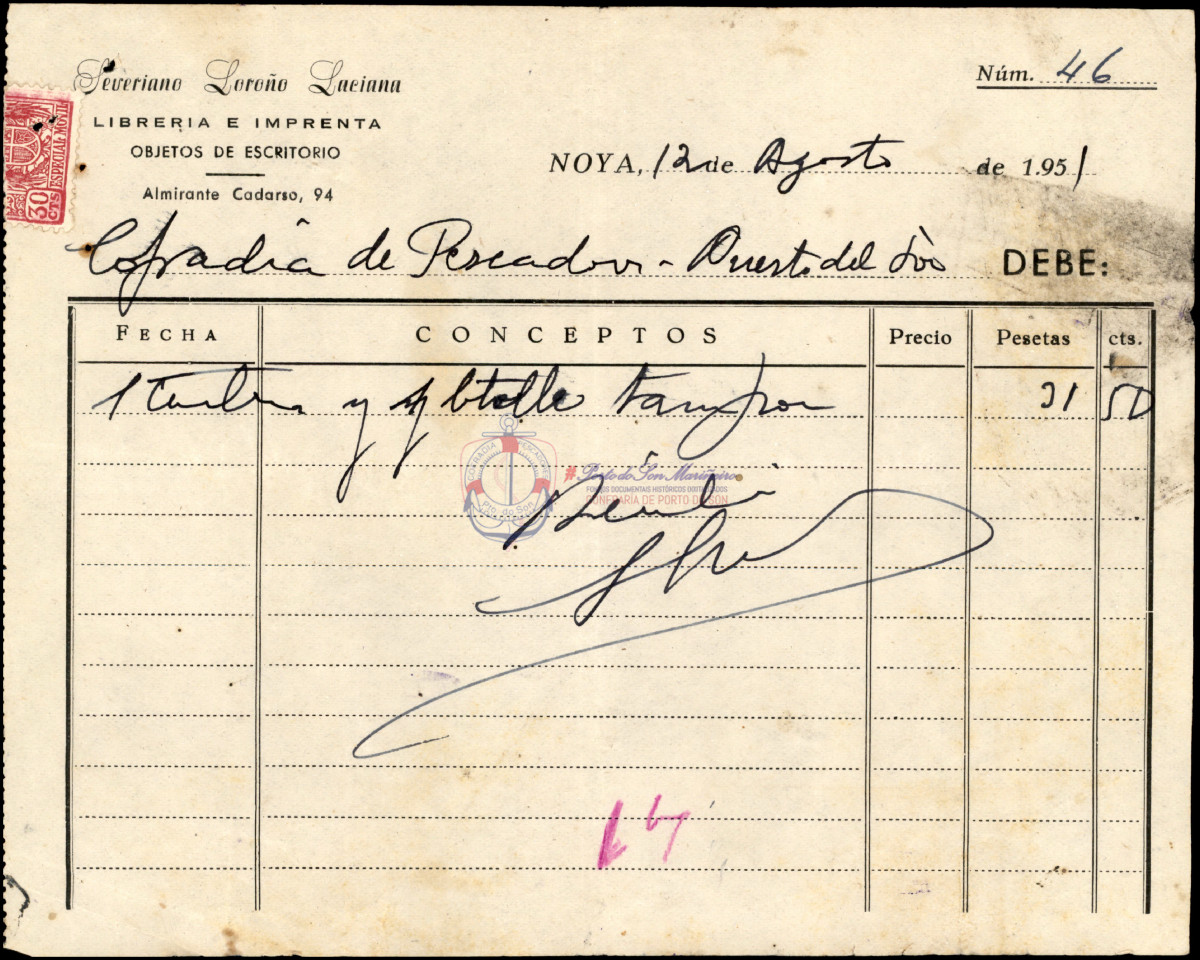 Severiano Loroño Luciana
LIBRERIA E IMPRENTA
OBJETOS DE ESCRITORIO
Almirante Cadarso, 94
Núm. 46
30 CTS ESPECIAL MOVIL
NOYA, 12 de Agosto de 1.951
Cofradia de Pescadores - Puerto del Son DEBE:
FECHA CONCEPTOS Precio Pesetas cts.
1 y 1 btella tampon 31 50
COFRADIA PESCADORES
Pto. do Son
#Porto do Son Mariñeiro
FONDOS DOCUMENTAIS HISTÓRICOS DIXITALIZADOS
CONFRARÍA DE PORTO DO SON
Recibi